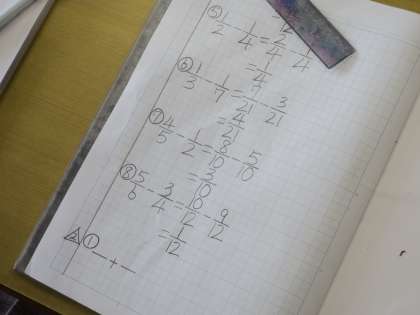 ⑤ 1/2 - 1/4 = 2/4 - 1/4
= 1/4
⑥ 1/3 - 1/7 = 7/21 - 3/21
= 4/21
⑦ 4/5 - 1/2 = 8/10 - 5/10
= 3/10
⑧ 5/6 - 3/4 = 10/12 - 9/12
= 1/12
① — + —